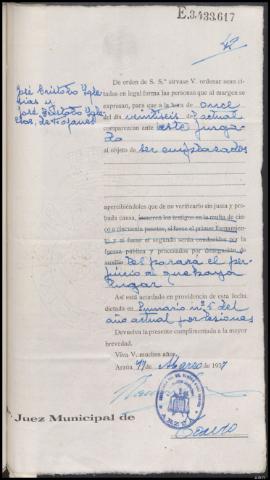 E.3433,617
42
De orden de S. S.ª sírvase V. ordenar sean ci-
tados en legal forma las personas que al margen se
expresan, para que a la hora de once
del día veintiseis de actual
comparezcan ante este Juzga-
do
al objeto de ser emplazados
José Cristobo
y
José Cristobo
de
apercibiéndoles que de no verificarlo sin pausa y pro-
bada causa, incurren los testigos en la multa de cinco
a cincuenta pesetas, si fuese el primer llamamiento,
y si fuese el segundo serán conducidos por la
fuerza pública y procesados por denegación de
auxilio les parará el per-
juicio a que haya
lugar
Así está acordado en providencia de esta fecha,
dictada en sumario nº 5 del
año actual por lesiones
Devuelva la presente cumplimentada a la mayor
brevedad.
Viva V. muchos años.
Arzúa 17 de Marzo de 1937
Juez Municipal de